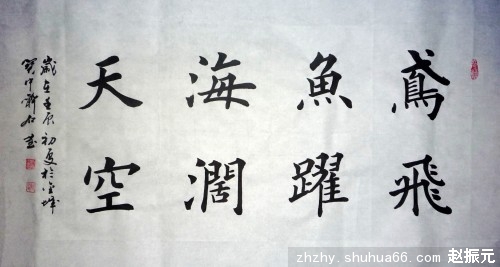 鳶飛
魚躍
海濶
天空
歲在壬辰初夏於
zhzhy.shuhua66.com 赵振元